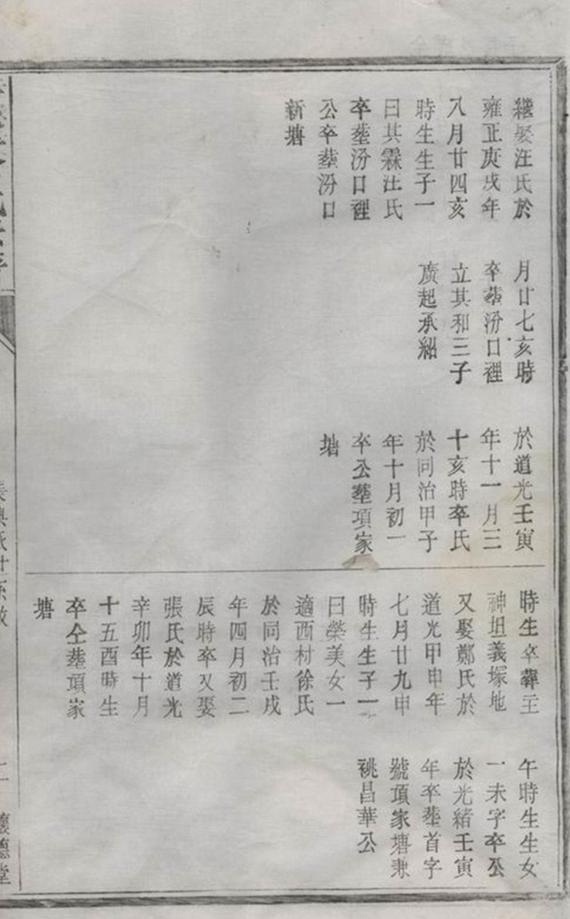 繼娶汪氏於
雍正庚戌年
八月廿四亥
時生生子一
曰其霖汪氏
卒塟汾口裡
公卒塟汾口
新塘
月廿七亥時
卒塟汾口裡
立其和三子
廣起承紹
於道光壬寅
年十一月三
十亥時卒氏
於同治甲子
年十月初一
卒公塟項家
塘
時生卒塟王
神坦義塚地
又娶鄭氏於
道光甲申年
七月廿九申
時生生子一
曰榮美女一
適西村徐氏
於同治壬戌
年四月初二
辰時卒又娶
張氏於道光
辛卯年十月
十五酉時生
卒仝塟項家
塘
午時生生女
一未字卒公
於光緒壬寅
年卒塟首字
號項家塘兼
祧昌華公